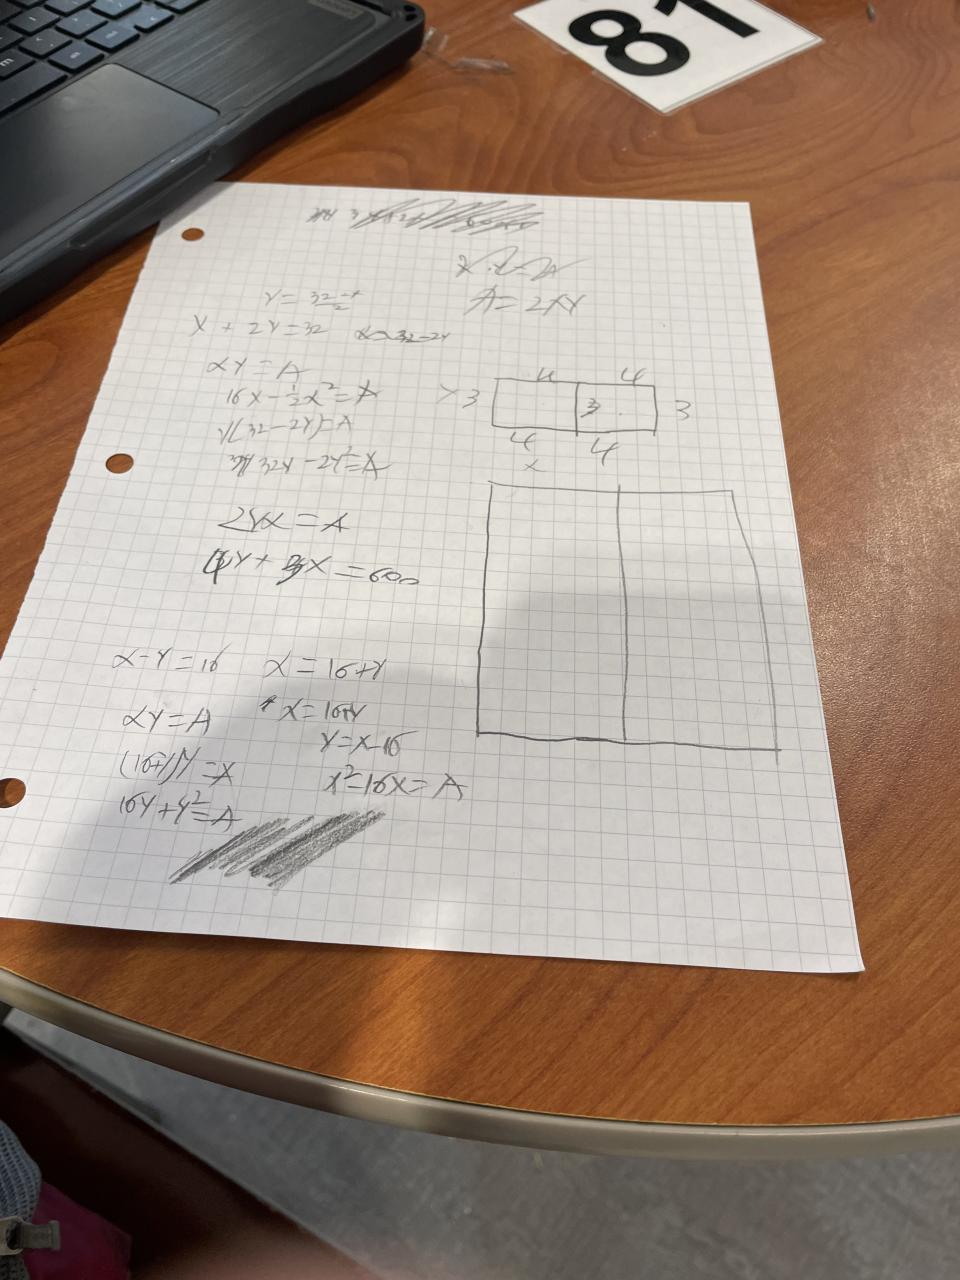 81
A = 2XY
X + 2Y = 32
XY = A
16X - 1/2 X² = A
Y(32 - 2Y) = A
32Y - 2Y² = A
4 4
3 3 3
4 4
X
2YX = A
4Y + 3X = 600
X - Y = 16 X = 16 + Y
XY = A X = 16 + Y
Y = X - 16
(16 + Y)Y = X
X² - 16X = A
16Y + Y² = A